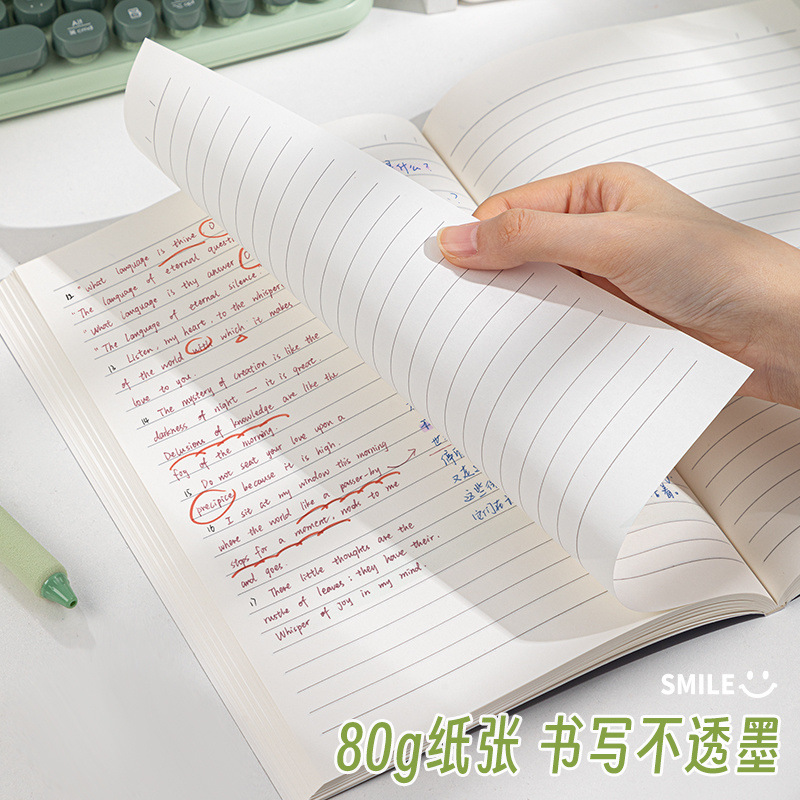 Alt
⌘ cmd
12 "What language is thine O
"The language of eternal questi
"What language is thy answer O
"The language of eternal silence
13 Listen, my heart, to the whispers
of the world with which it makes
love to you.
14 The mystery of creation is like the
darkness of night — it is great.
Delusions of knowledge are like the
fog of the morning.
15 Do not seat your love upon a
precipice because it is high.
16 I sit at my window this morning
where the world like a passer-by
stops for a moment, nods to me
and goes.
17 There little thoughts are the
rustle of leaves; they have their
Whisper of joy in my mind.
什么?
世
又走
这些
它们在
SMILE
80g纸张 书写不透墨